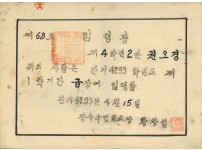 제68호 임명장
제4학년2반 권오경
위의 사람은 단기4293학년도 제
1학기간 급장에 임명함
단기4293년 4월15일
장수국민학교장